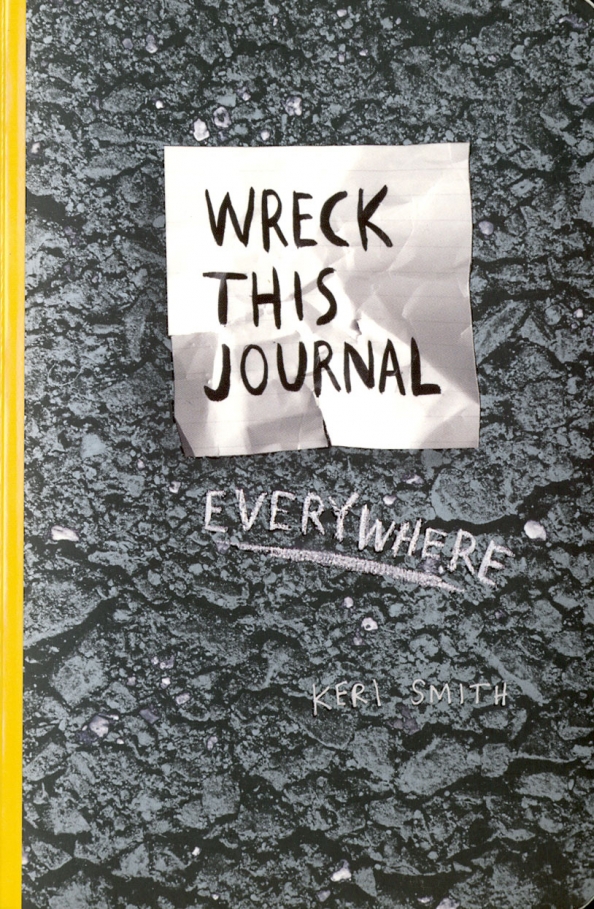 WRECK
THIS
JOURNAL
EVERYWHERE
KERI SMITH